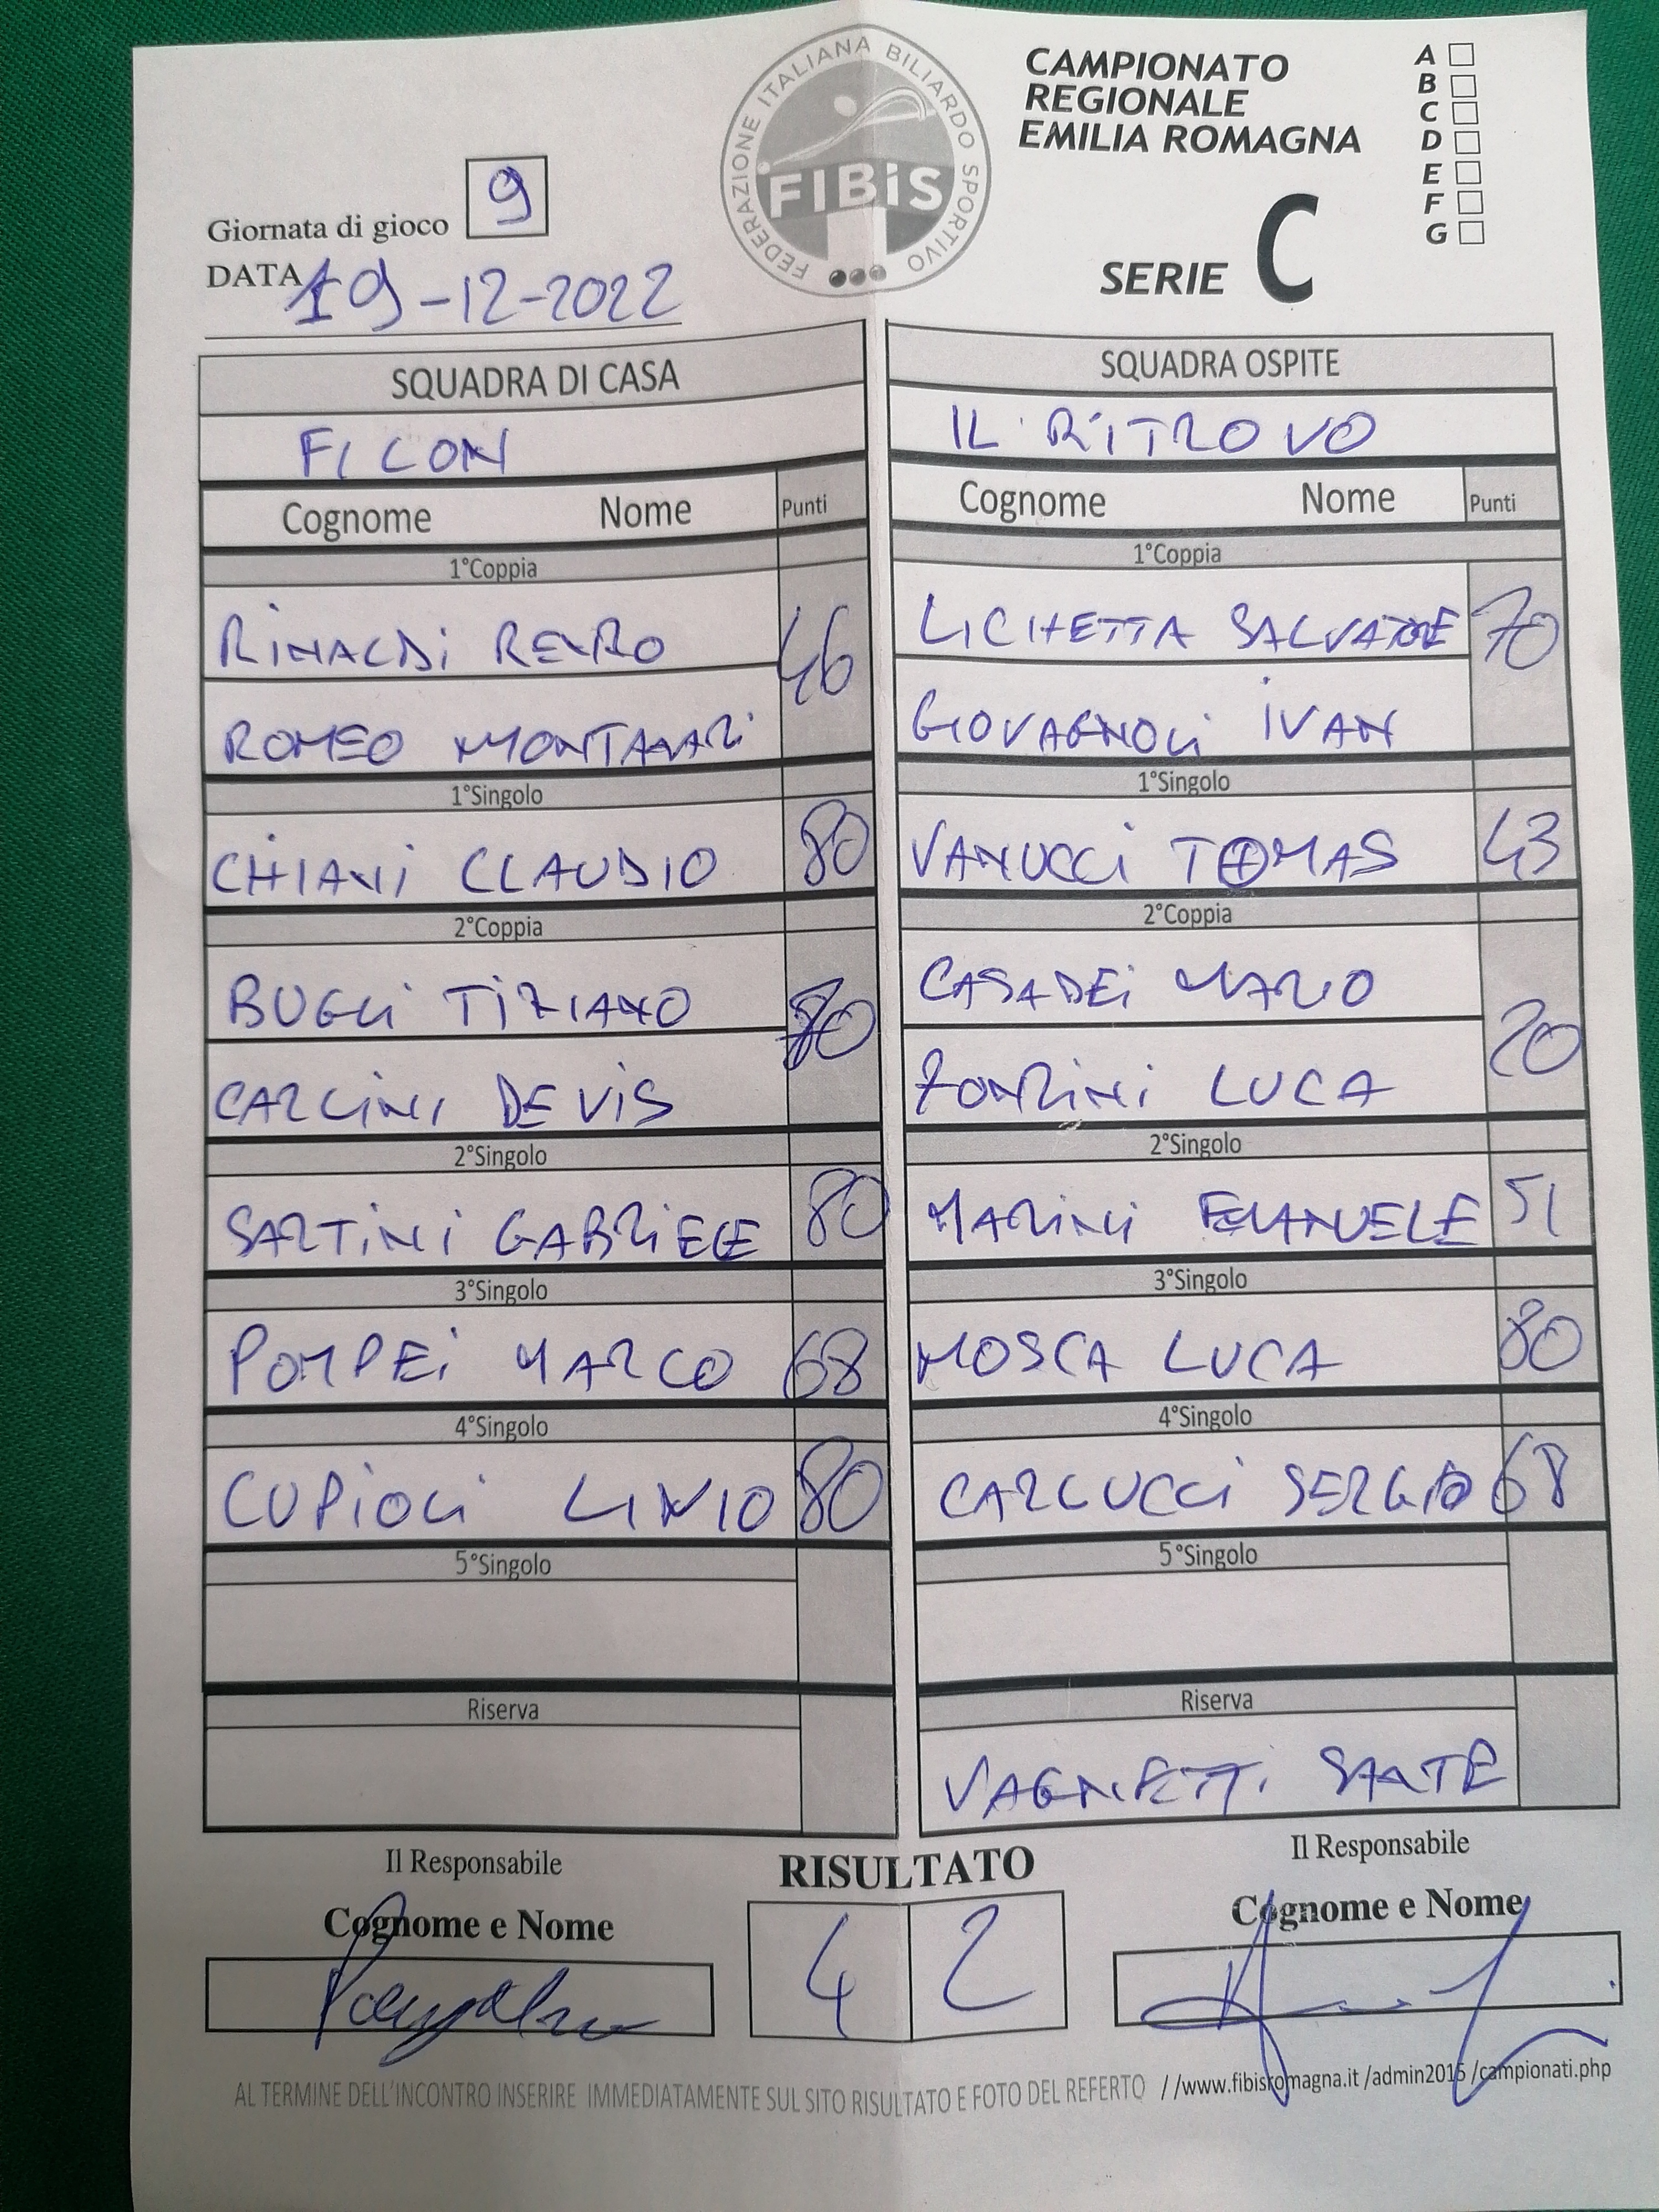 FEDERAZIONE ITALIANA BILIARDO SPORTIVO
FIBiS
CAMPIONATO
REGIONALE
EMILIA ROMAGNA
SERIE C
A
B
C
D
E
F
G
Giornata di gioco 9
DATA 19-12-2022
SQUADRA DI CASA
FICON
Cognome Nome Punti
1°Coppia
RINALDi RENZO 46
ROMEO MONTANARi
1°Singolo
CHIANi CLAUDIO 80
2°Coppia
BUGLi TiZIANO 80
CARLiNi DEVIS
2°Singolo
SARTiNi GABRiELE 80
3°Singolo
POMPEi MARCO 68
4°Singolo
CUPiOLi LIVIO 80
5°Singolo
Riserva
SQUADRA OSPITE
IL RiTROVO
Cognome Nome Punti
1°Coppia
LICHETTA SALVATORE 70
GIOVAGNOLi IVAN
1°Singolo
VANUCCi TOMAS 43
2°Coppia
CASADEi MARIO 20
ZONZiNi LUCA
2°Singolo
MARiNi EMANUELE 51
3°Singolo
MOSCA LUCA 80
4°Singolo
CARLUCCi SERGIO 68
5°Singolo
Riserva
VAGNETTi SANTE
Il Responsabile
Cognome e Nome
RISULTATO
4 2
Il Responsabile
Cognome e Nome
AL TERMINE DELL'INCONTRO INSERIRE IMMEDIATAMENTE SUL SITO RISULTATO E FOTO DEL REFERTO //www.fibisromagna.it /admin2015 /campionati.php